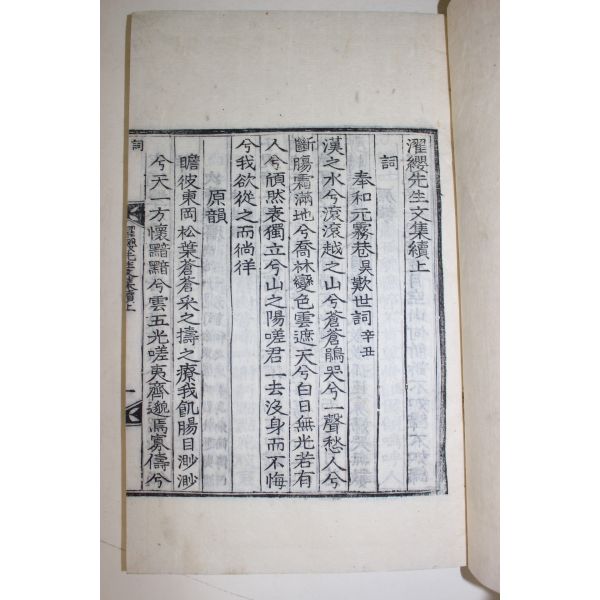 濯纓先生文集續上
詞
奉和元霧巷昊歎世詞辛丑
漢之水兮滾滾越之山兮蒼蒼鵑哭兮一聲愁人兮
斷腸霜滿地兮喬林變色雲遮天兮白日無光若有
人兮頎然表獨立兮山之陽嗟君一去沒身而不悔
兮我欲從之而徜徉
原韻
瞻彼東岡松葉蒼蒼采之擣之療我飢腸目渺渺
兮天一方懷黯黯兮雲五光嗟夷齊邈焉寡儔兮
詞
濯纓先生文集續上
一